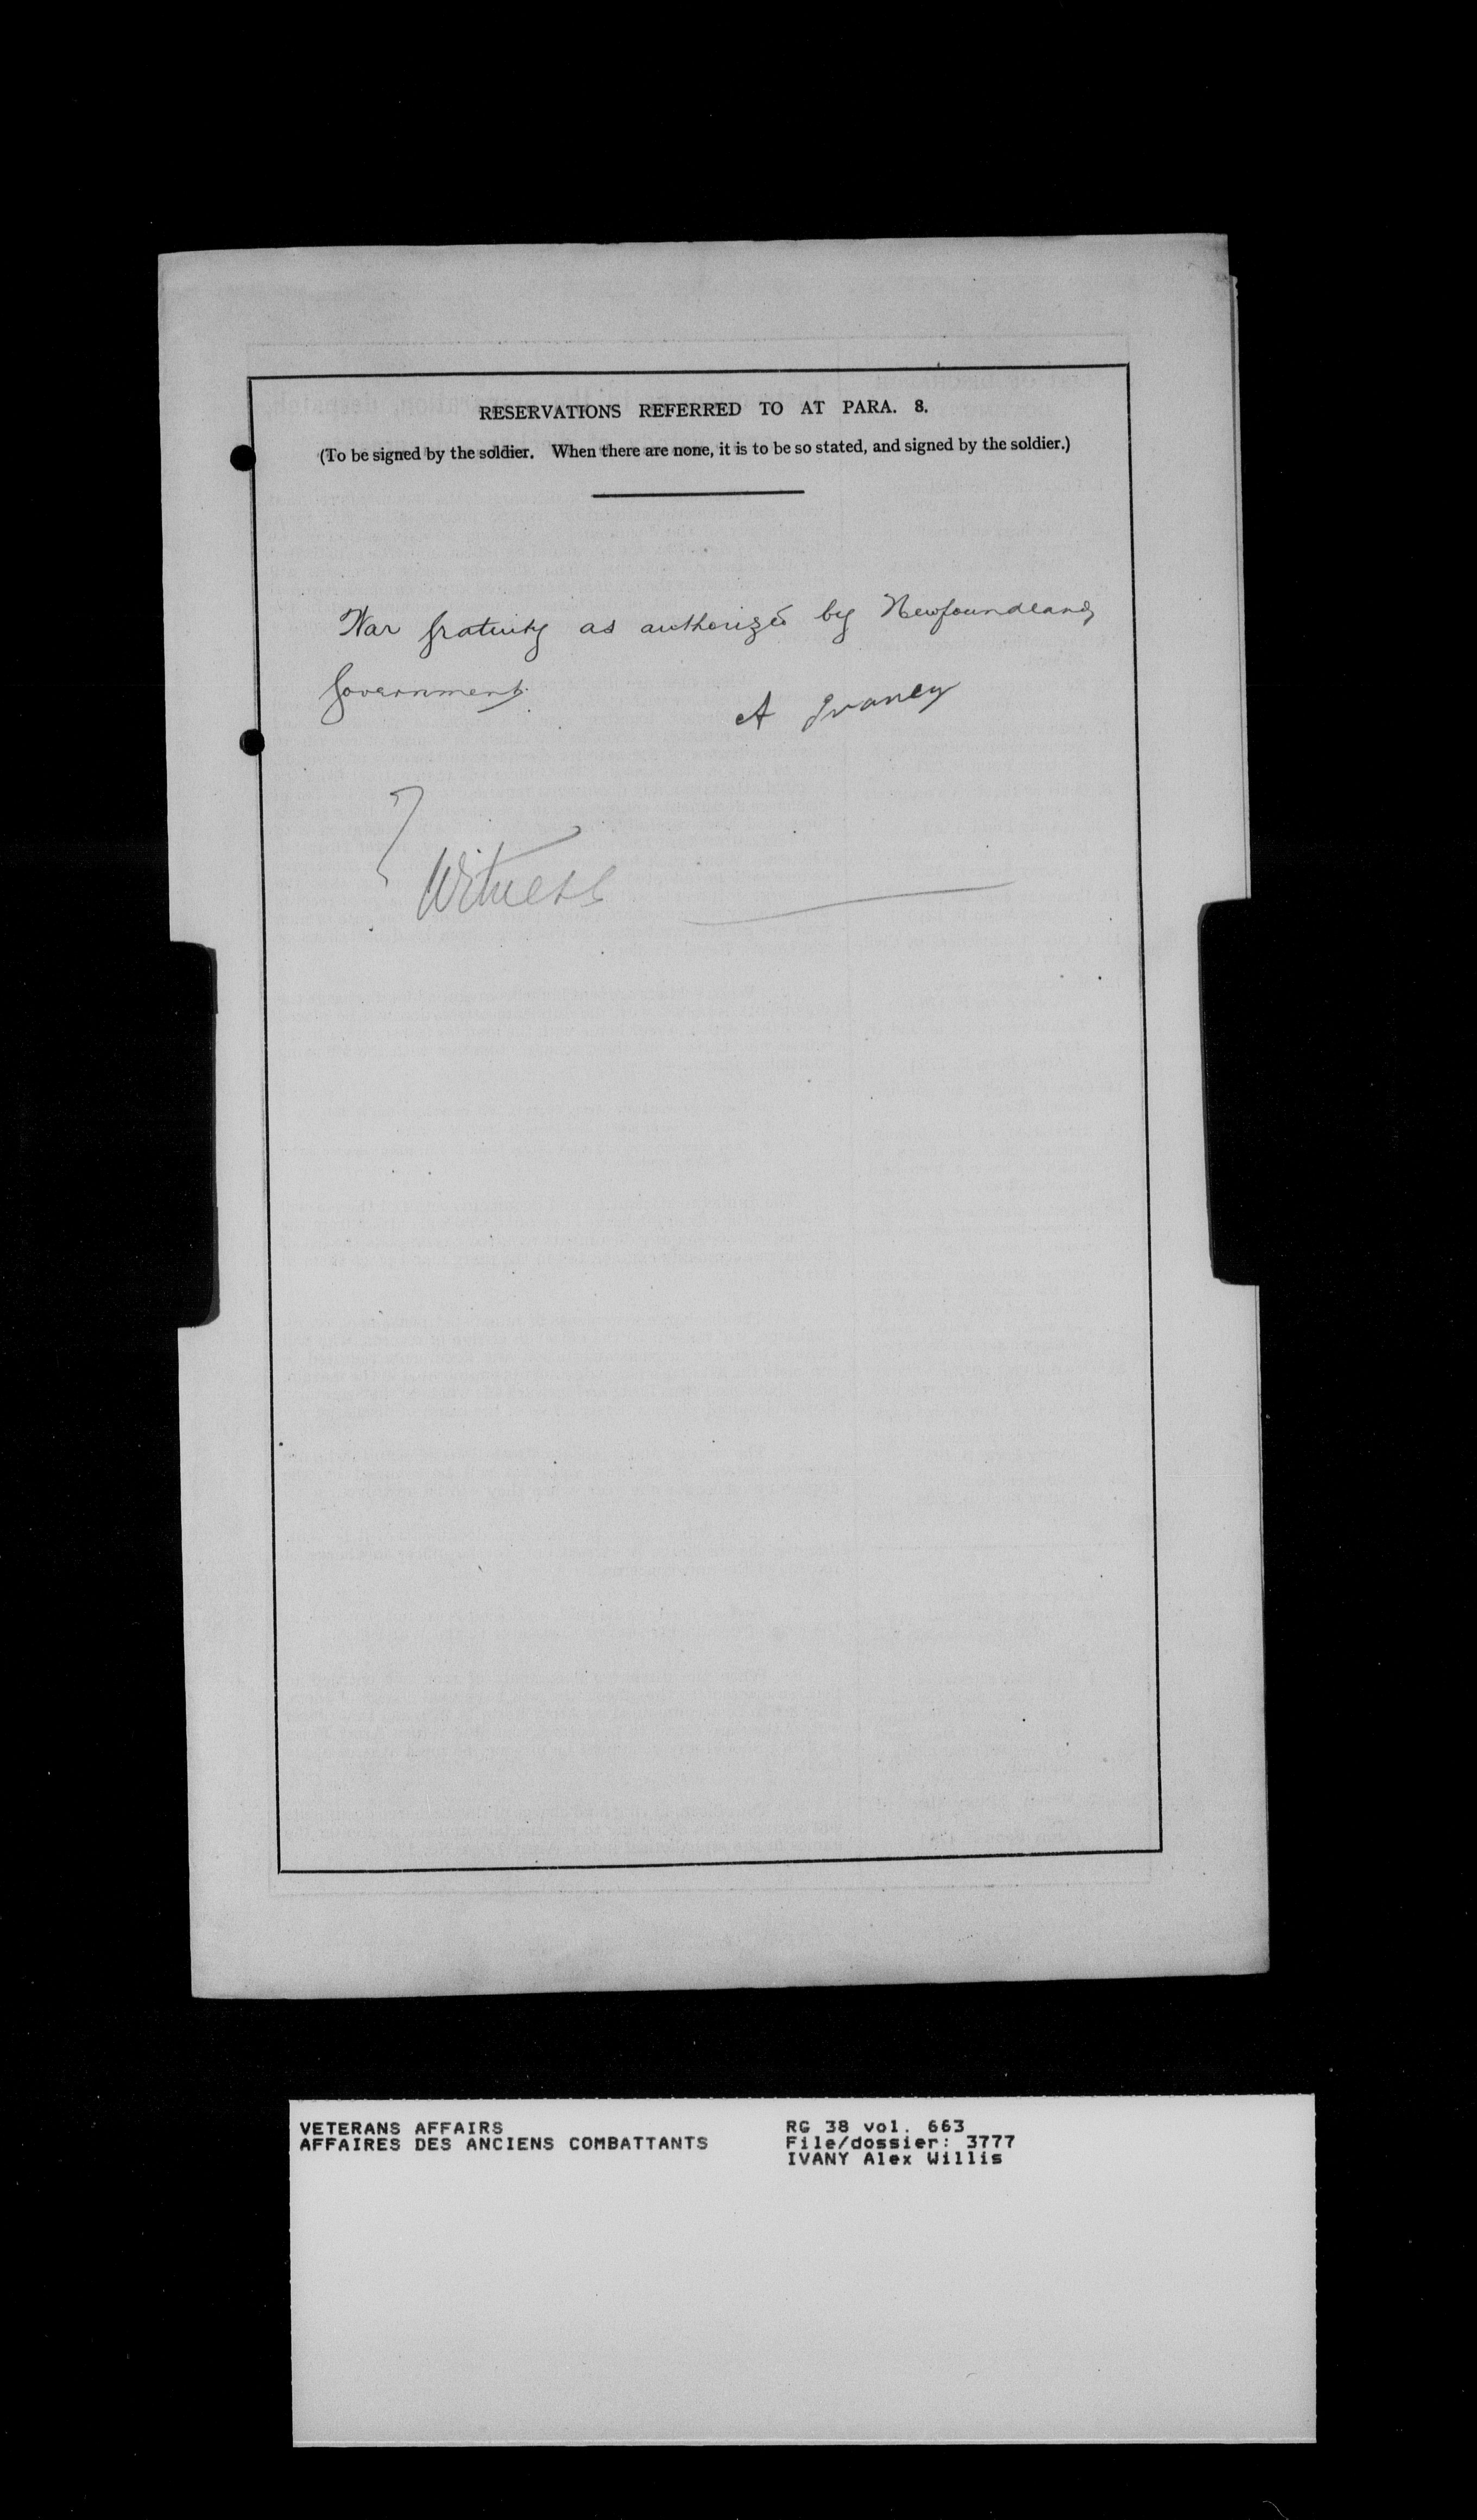 RESERVATIONS REFERRED TO AT PARA. 8.
(To be signed by the soldier. When there are none, it is to be so stated, and signed by the soldier.)
War gratuity as authorized by Newfoundland
Government.
A Ivaney
Witness
VETERANS AFFAIRS
AFFAIRES DES ANCIENS COMBATTANTS
RG 38 vol. 663
File/dossier: 3777
IVANY Alex Willis